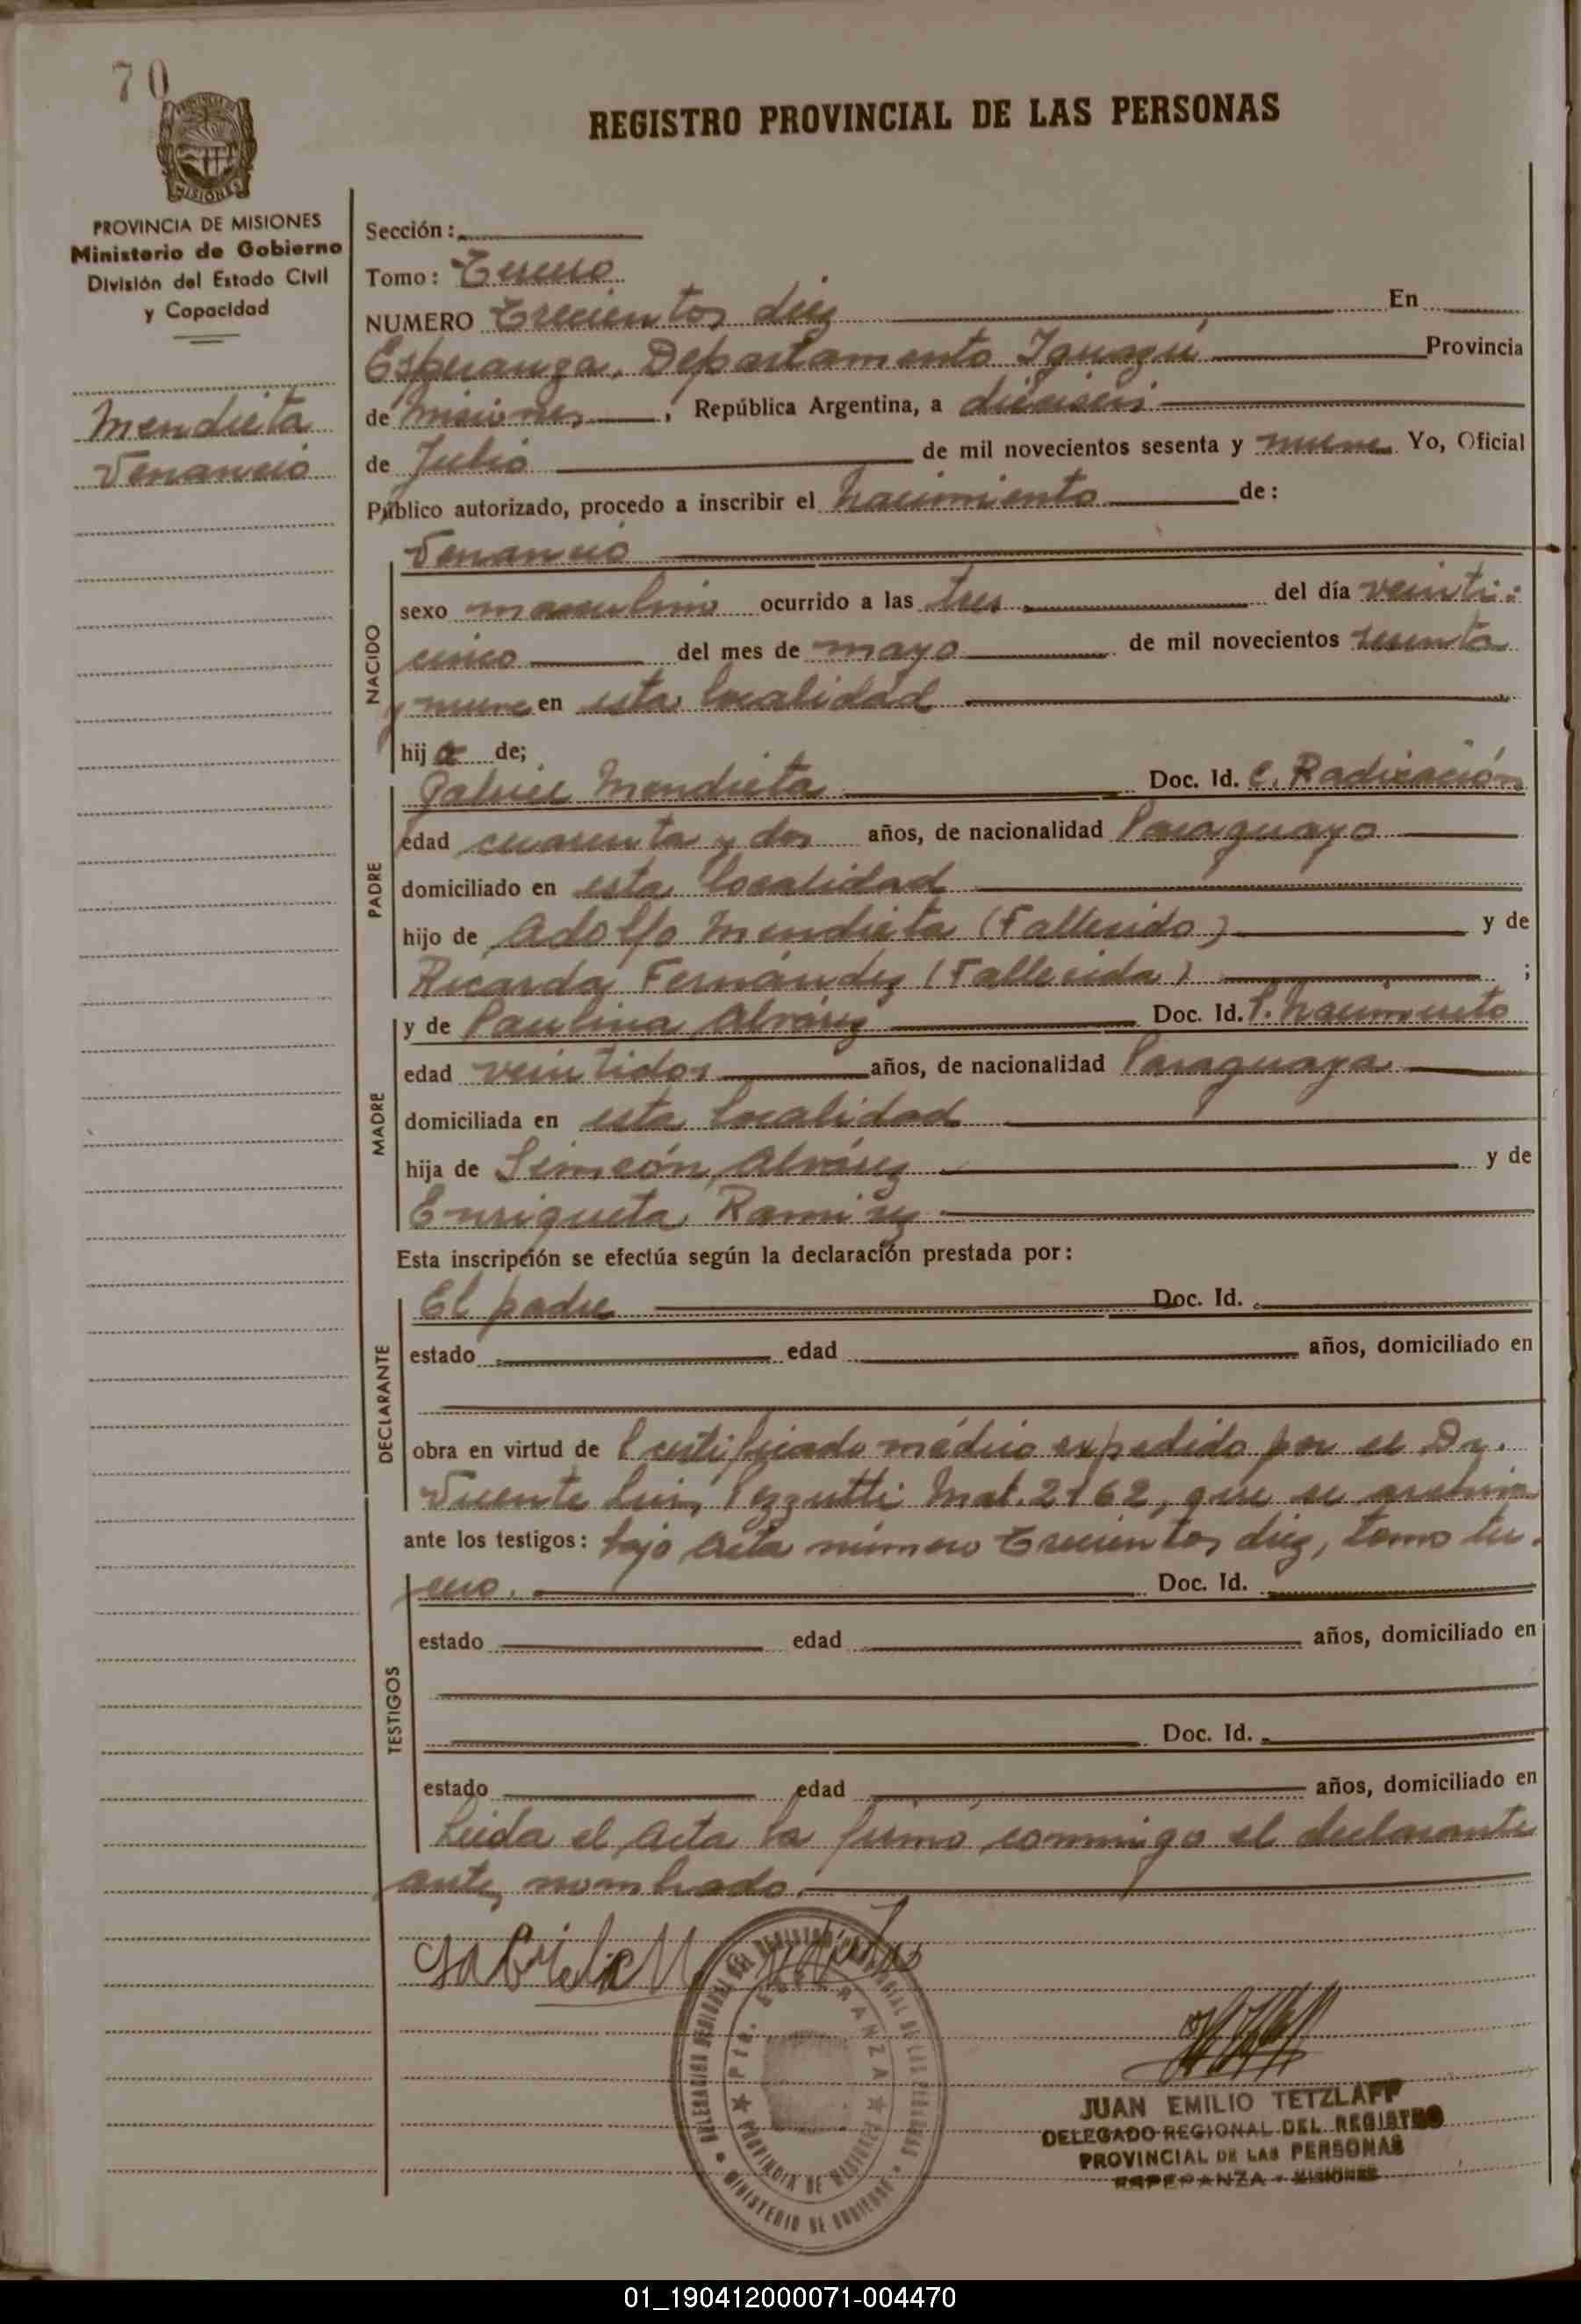 70
PROVINCIA DE MISIONES
Ministerio de Gobierno
División del Estado Civil
y Capacidad
Mendieta
Venancio
REGISTRO PROVINCIAL DE LAS PERSONAS
Sección:
Tomo: Tercero
NUMERO Trecientos diez En
Esperanza, Departamento Iguazú Provincia
de Misiones, República Argentina, a dieciseis
de Julio de mil novecientos sesenta y nueve Yo, Oficial
Público autorizado, procedo a inscribir el nacimiento de:
NACIDO
Venancio
sexo masculino ocurrido a las tres del día veinti:
cinco del mes de mayo de mil novecientos sesenta
y nueve en esta localidad
hijo de;
PADRE
Gabriel Mendieta Doc. Id. C. Radicación
edad cuarenta y dos años, de nacionalidad Paraguayo
domiciliado en esta localidad
hijo de Adolfo Mendieta (Fallecido) y de
Ricarda Fernández (Fallecida) ;
MADRE
y de Paulina Alvárez Doc. Id. P. Nacimiento
edad veintidos años, de nacionalidad Paraguaya
domiciliada en esta localidad
hija de Simeón Alvárez y de
Enriqueta Ramirez
Esta inscripción se efectúa según la declaración prestada por:
DECLARANTE
El padre Doc. Id.
estado edad años, domiciliado en
obra en virtud de Certificado médico expedido por el Dr.
Vicente Luis Pezzutti Mat. 2162, que se archiva
ante los testigos: bajo acta número Trecientos diez, tomo ter.
cero. Doc. Id.
TESTIGOS
estado edad años, domiciliado en
Doc. Id.
estado edad años, domiciliado en
Leida el Acta la firmó conmigo el declarante
antes nombrado.
Gabriel M
DELEGACION REGIONAL DEL REGISTRO PROVINCIAL DE LAS PERSONAS
Pto. ESPERANZA
PROVINCIA DE MISIONES
MINISTERIO DE GOBIERNO
JUAN EMILIO TETZLAFF
DELEGADO REGIONAL DEL REGISTRO
PROVINCIAL DE LAS PERSONAS
ESPERANZA - MISIONES
01_190412000071-004470